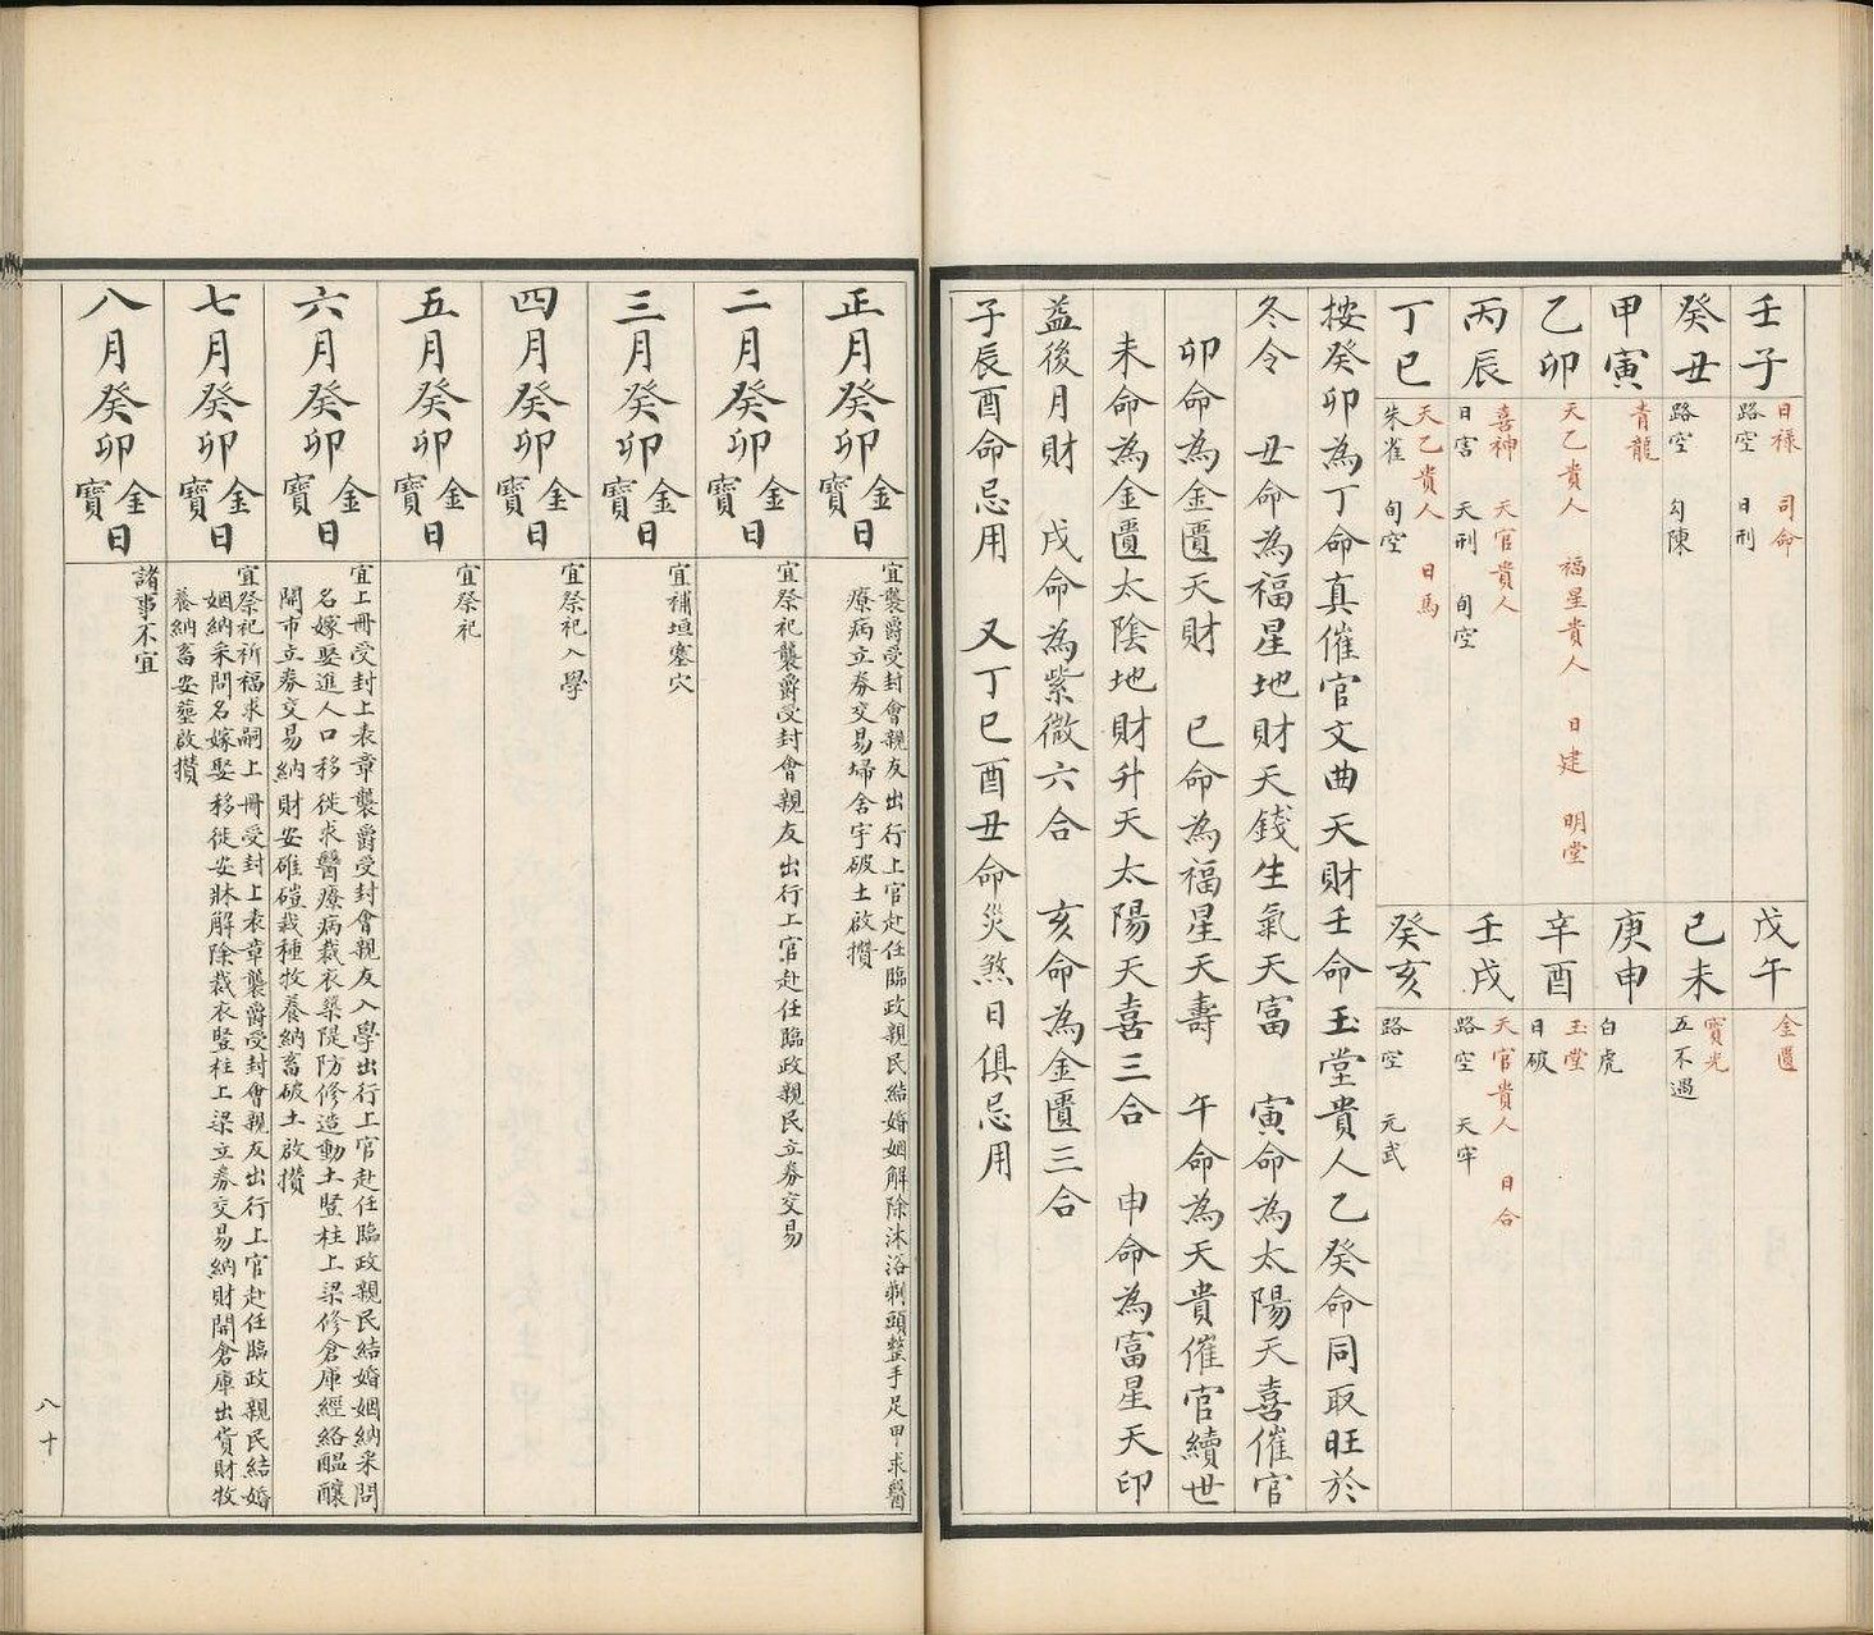 壬子
日祿 司命
路空 日刑
癸丑
路空 勾陳
甲寅
青龍
乙卯
天乙貴人 福星貴人 日建 明堂
丙辰
喜神 天官貴人
日害 天刑 旬空
丁巳
天乙貴人 日馬
朱雀 旬空
戊午
金匱
己未
寶光
五不遇
庚申
白虎
辛酉
玉堂
日破
壬戌
天官貴人 日合
路空 天牢
癸亥
路空 元武
按癸卯為丁命真催官文曲天財壬命玉堂貴人乙癸命同取旺於
冬令 丑命為福星地財天錢生氣天富 寅命為太陽天喜催官
卯命為金匱天財 巳命為福星天壽 午命為天貴催官續世
未命為金匱太陰地財升天太陽天喜三合 申命為富星天印
益後月財 戌命為紫微六合 亥命為金匱三合
子辰酉命忌用 又丁巳酉丑命災煞日俱忌用
正月癸卯金寶日
宜襲爵受封會親友出行上官赴任臨政親民結婚姻解除沐浴剃頭整手足甲求醫
療病立券交易埽舍宇破土啟攢
二月癸卯金寶日
宜祭祀襲爵受封會親友出行上官赴任臨政親民立券交易
三月癸卯金寶日
宜補垣塞穴
四月癸卯金寶日
宜祭祀入學
五月癸卯金寶日
宜祭祀
六月癸卯金寶日
宜上冊受封上表章襲爵受封會親友入學出行上官赴任臨政親民結婚姻納采問
名嫁娶進人口移徙求醫療病裁衣築隄防修造動土豎柱上梁修倉庫經絡醞釀
開市立券交易納財安碓磑栽種牧養納畜破土啟攢
七月癸卯金寶日
宜祭祀祈福求嗣上冊受封上表章襲爵受封會親友出行上官赴任臨政親民結婚
姻納采問名嫁娶移徙安牀解除裁衣豎柱上梁立券交易納財開倉庫出貨財牧
養納畜安葬啟攢
八月癸卯金寶日
諸事不宜
八十